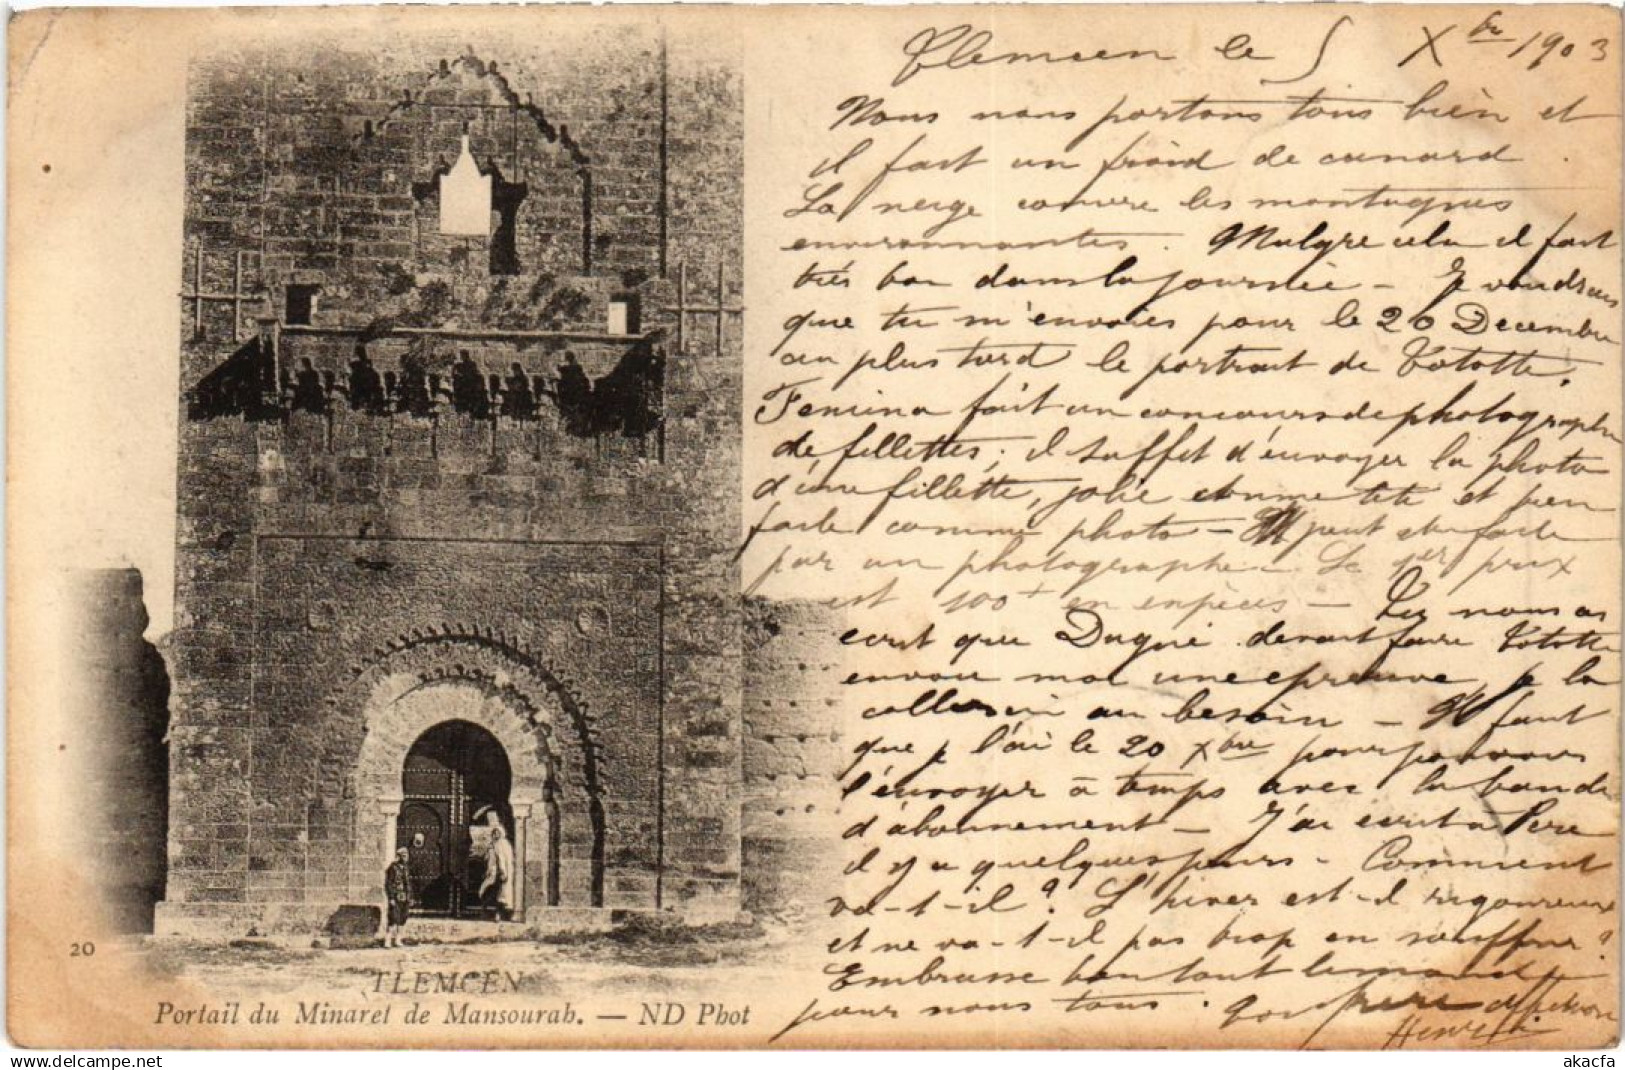 Tlemcen le 5 Xbre 1903
Nous nous portons tous bien et
il fait un froid de canard.
La neige couvre les montagnes
environnantes. Malgré cela il fait
très bon dans la journée - Je voudrais
que tu m'envoies pour le 20 Décembre
au plus tard le portrait de Totote.
Femina fait un concours de photographie
de fillettes; il suffit d'envoyer la photo
d'une fillette, jolie comme tête et bien
faite comme photo - Il peut être faite
par un photographe. Le 1er prix
est 100 en espèces - Tu nous as
écrit que Dugné devait faire Totote
envoie moi une épreuve, je la
collerai au besoin - Il faut
que je l'ai le 20 Xbre pour pouvoir
l'envoyer à temps avec la bande
d'abonnement - J'ai écrit à Père
il y a quelques jours - Comment
va-t-il? L'hiver est-il rigoureux
et ne va-t-il pas trop en souffrir?
Embrasse bien tout le monde
pour nous tous. Ton frère
Henri
20
TLEMCEN
Portail du Minaret de Mansourah. — ND Phot
akacfa